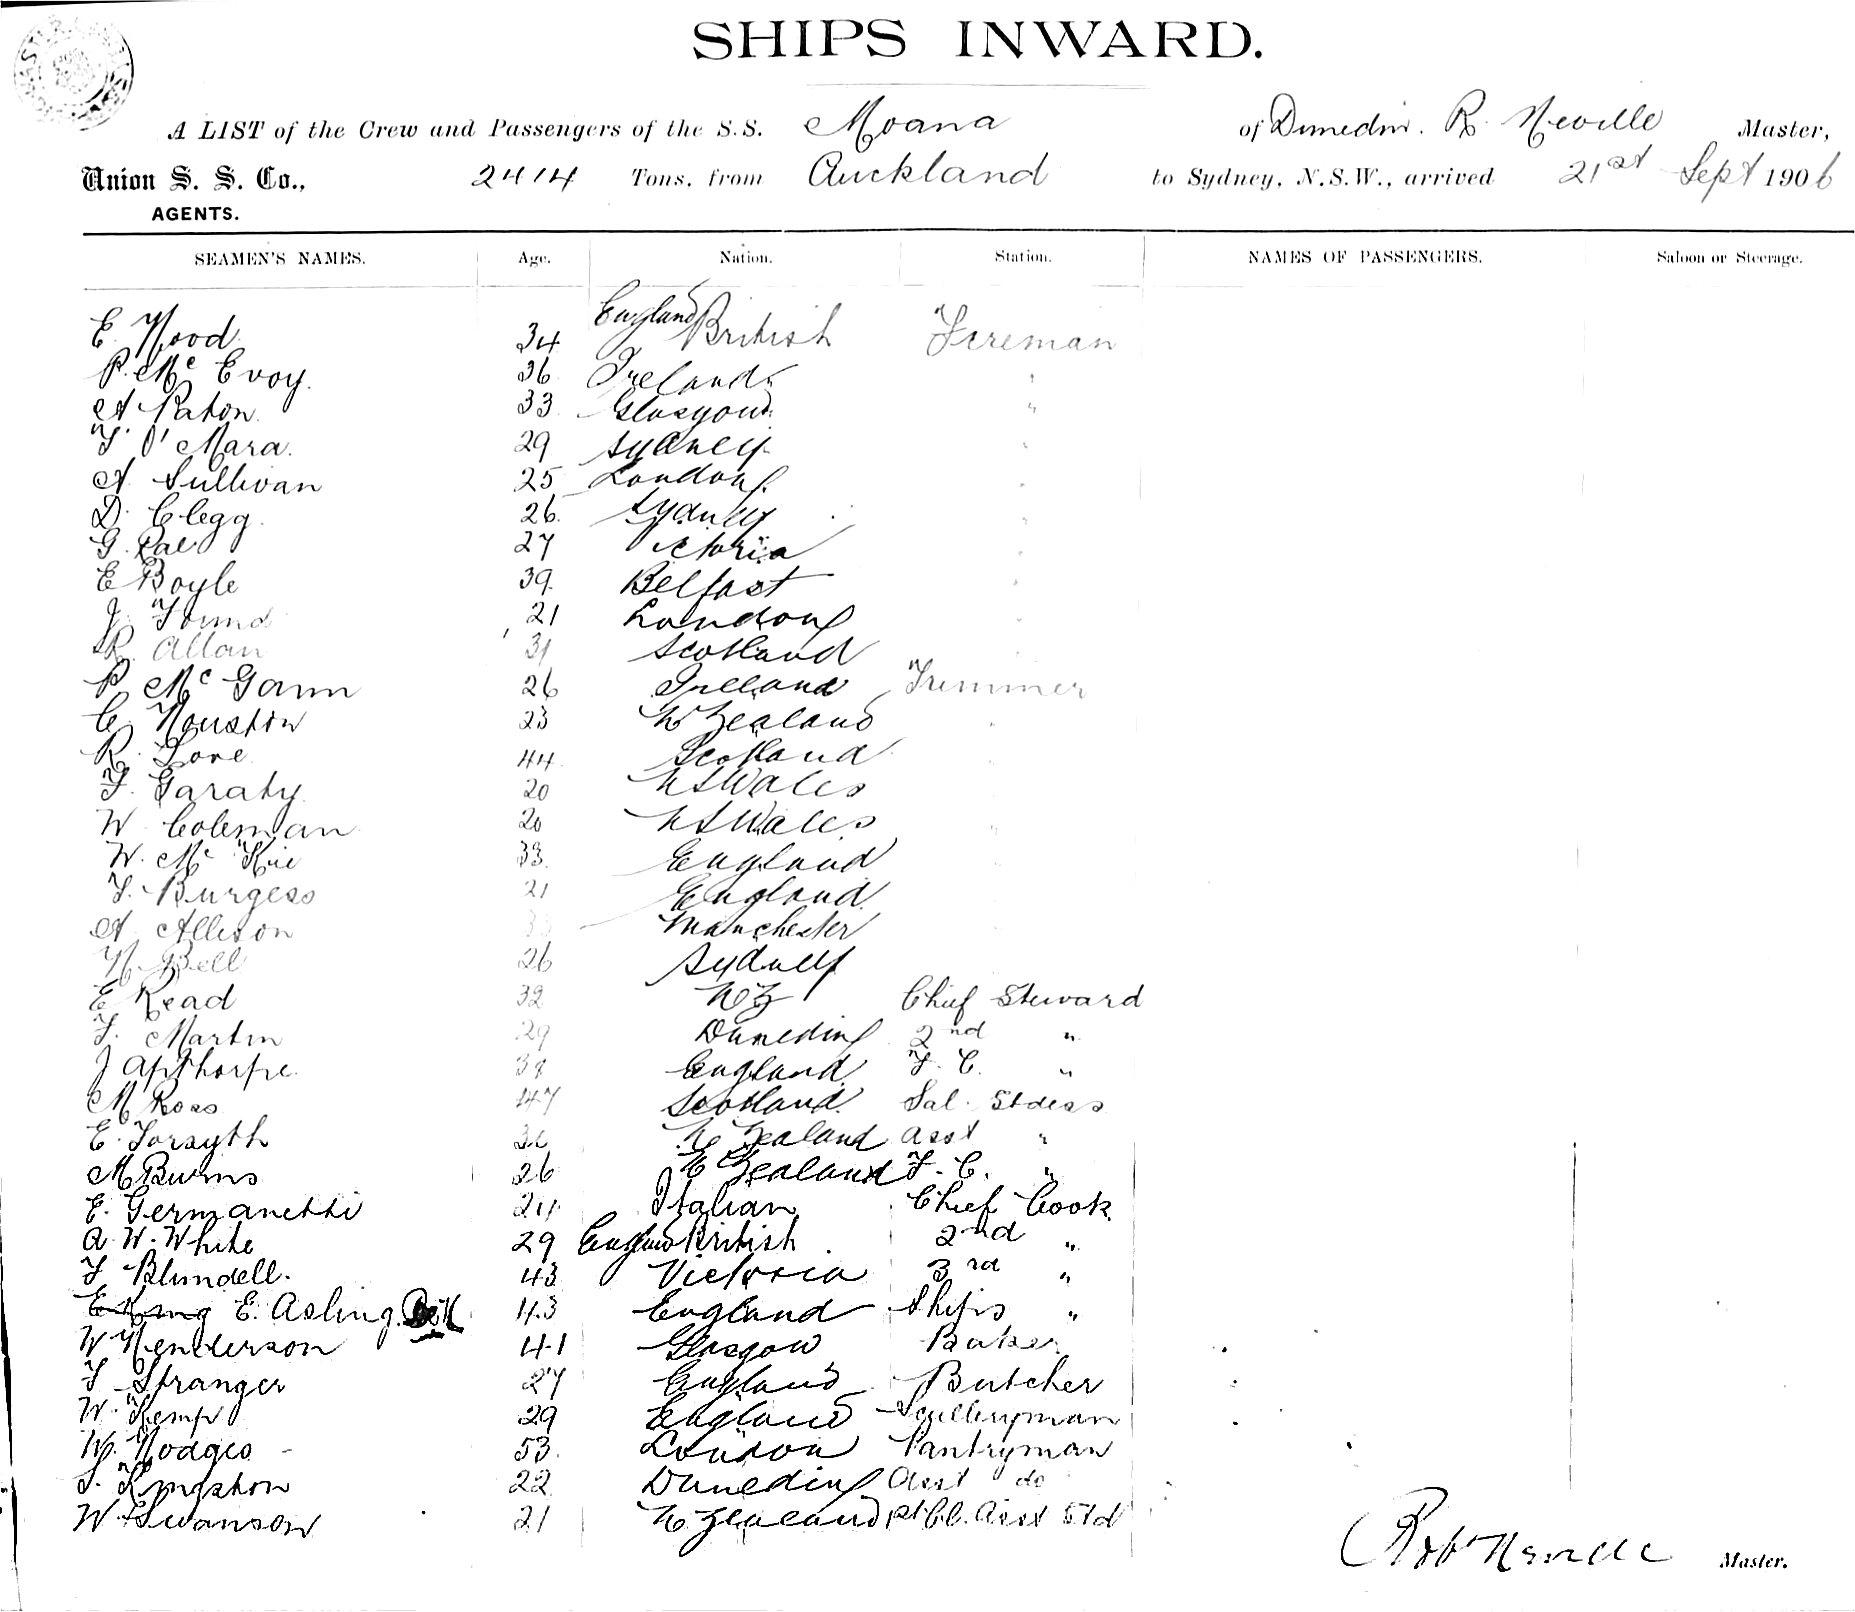 SHIPS INWARD.
A LIST of the Crew and Passengers of the S.S. Moana of Dunedin. R. Neville Master,
Union S. S. Co., 2414 Tons, from Auckland to Sydney, N.S.W., arrived 21st Sept 1906
AGENTS.
SEAMEN'S NAMES. Age. Nation. Station. NAMES OF PASSENGERS. Saloon or Steerage.
E. Wood 34 England British Fireman
P. McEvoy. 36 Ireland "
A Paton. 33 Glasgow "
T O'Mara. 29 Sydney "
A Sullivan 25 London "
D. Clegg. 26. Sydney "
G. Rae 27 Victoria "
E Boyle 39. Belfast "
J. Found 21 London "
R. Allan 31 Scotland "
P. McGann 26 Ireland Trimmer
C. Houston 23 N Zealand "
R. Love 44 Scotland
T. Garaty 20 N S Wales
W Coleman 20 N S Wales "
W. McKie 33. England
T. Burgess 21 England
A Allison 33 Manchester
H. Bell 26 Sydney
E Read 32 NZ Chief Steward
T. Martin 29 Dunedin 2nd "
J Apthorpe 38 England F. C. "
M Ross 47 Scotland Sal. Stdess
E. Forsyth N Zealand Asst "
M Burns 26 N Zealand F. C. "
E. Germanetti 24 Italian Chief Cook
A. W. White 29 England British 2nd "
T Blundell. 43 Victoria 3rd "
E King E. Asling 43 England Ships "
W Henderson 41 Glasgow Baker
T Stranger 27 England Butcher
W. Kemp 29 England Sculleryman
W. Hodges - 53. London Pantryman
S. Kingston 22 Dunedin Asst do
W. Swanson 21 N Zealand 2d Cl. Asst Std
Robt Neville Master.